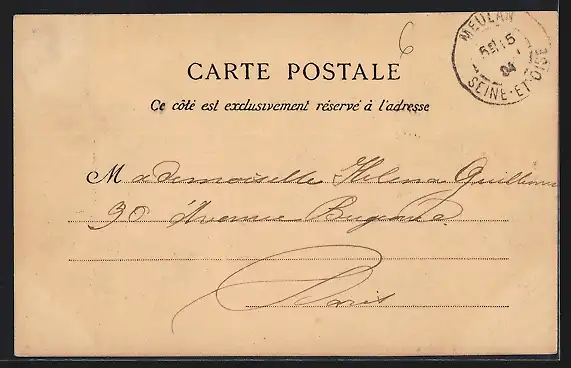 6
MEULAN
5
04
SEINE-ET-OISE
CARTE POSTALE
Ce côté est exclusivement réservé à l'adresse
Mademoiselle Helena
30 Avenue Bugeaud
Paris